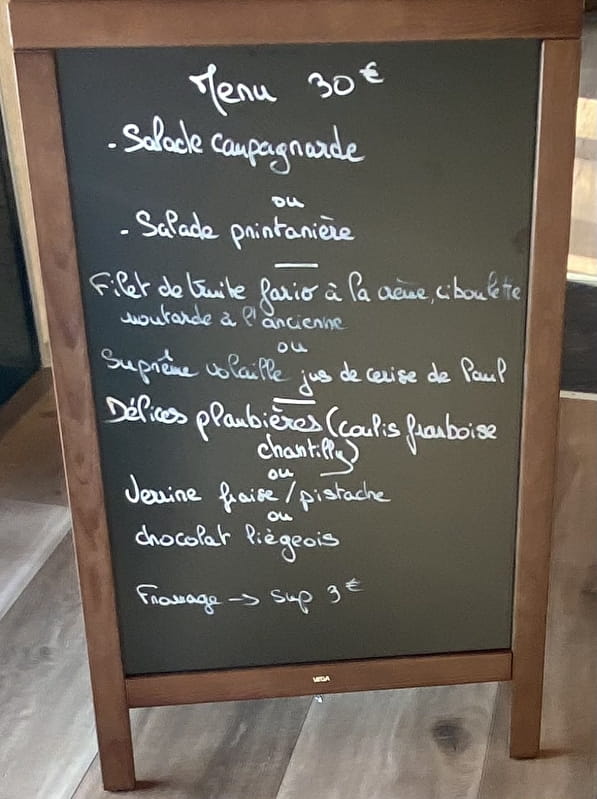 Menu 30€
- Salade campagnarde
ou
- Salade printanière
Filet de truite fario à la crème, ciboulette
moutarde à l'ancienne
ou
Suprême volaille jus de cerise de Paul
Délices plombières (coulis framboise
chantilly)
ou
Verrine fraise/pistache
ou
chocolat liégeois
Fromage → sup 3€
VEGA